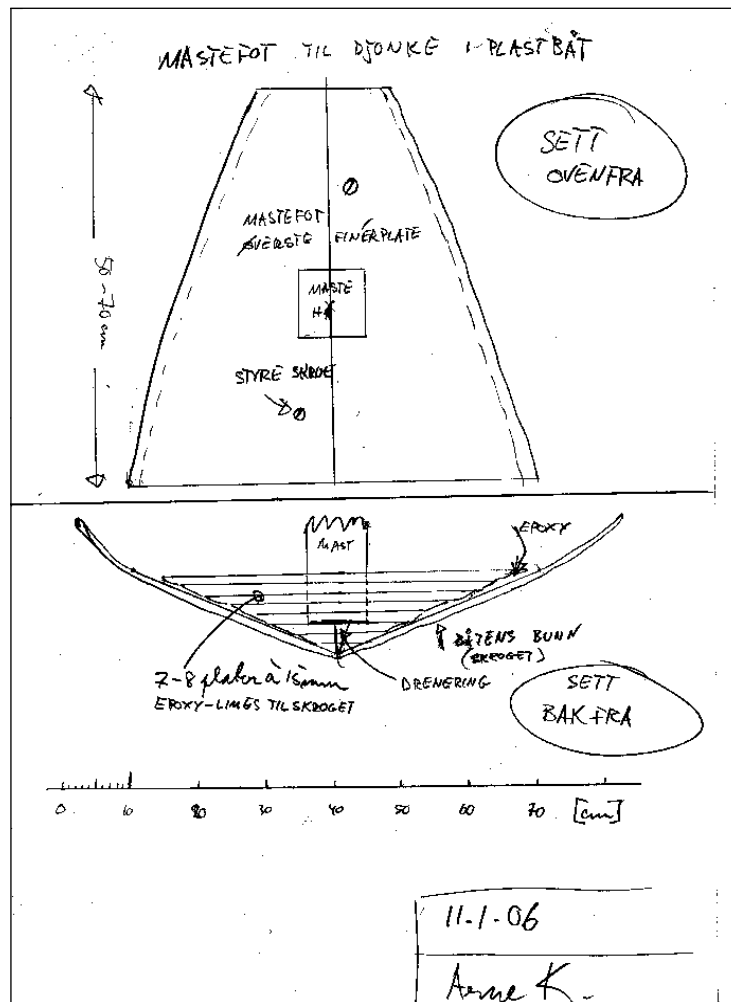 MASTEFOT TIL DJONKE I PLASTBÅT
SETT
OVENFRA
50-70 cm
MASTEFOT
ØVERSTE FINÉRPLATE
MASTE
STYRE SKRUE
EPOXY
MAST
BÅTENS BUNN
(SKROGET)
7-8 plater à 15mm
EPOXY-LIMES TIL SKROGET
DRENERING
SETT
BAK FRA
0 10 20 30 40 50 60 70 [cm]
11.1.06
Arne K.